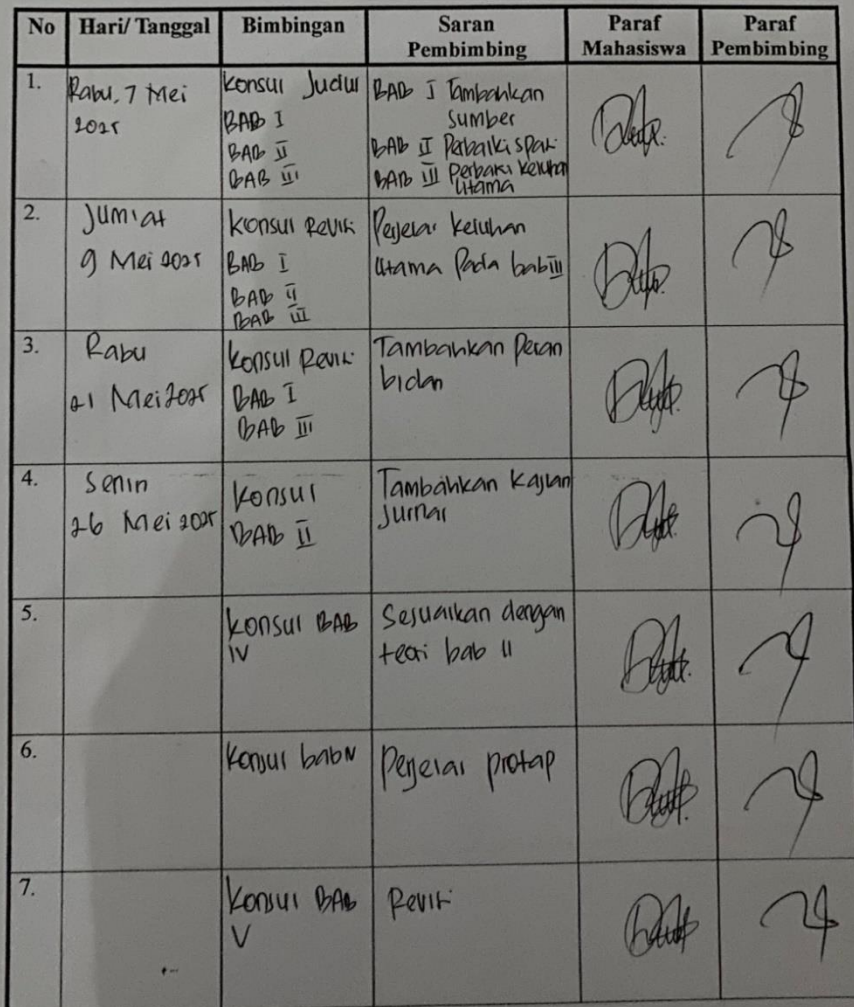 No Hari/ Tanggal Bimbingan Saran Pembimbing Paraf Mahasiswa Paraf Pembimbing
1. Rabu, 7 Mei 2025
Konsul Judul
BAB I
BAB II
BAB III
BAB I Tambahkan
Sumber
BAB II Perbaiki spasi
BAB III Perbaiki Keluhan
Utama
2. Jumiat
9 Mei 2025
Konsul Revisi
BAB I
BAB II
BAB III
Perjelas Keluhan
Utama Pada bab III
3. Rabu
21 Mei 2025
Konsul Revisi
BAB I
BAB III
Tambahkan Peran
bidan
4. Senin
26 Mei 2025
Konsul
BAB II
Tambahkan Kajian
Jurnal
5.
Konsul BAB
IV
Sesuaikan dengan
teori bab II
6.
Konsul bab IV
Perjelas protap
7.
Konsul BAB
V
Revisi